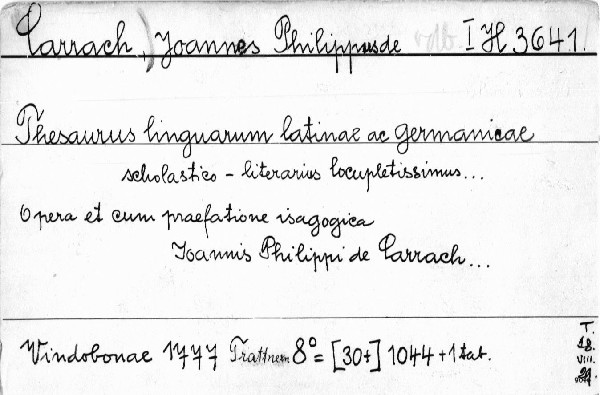 Carrach, Joannes Philippus de I H 3641.
Thesaurus linguarum latinae ac germanicae
scholastico - literarius locupletissimus...
Opera et cum praefatione isagogica
Joannis Philippi de Carrach...
Vindobonae 1777 Trattnern 8° = [30+] 1044 + 1 tat.
T.
18.
VIII.